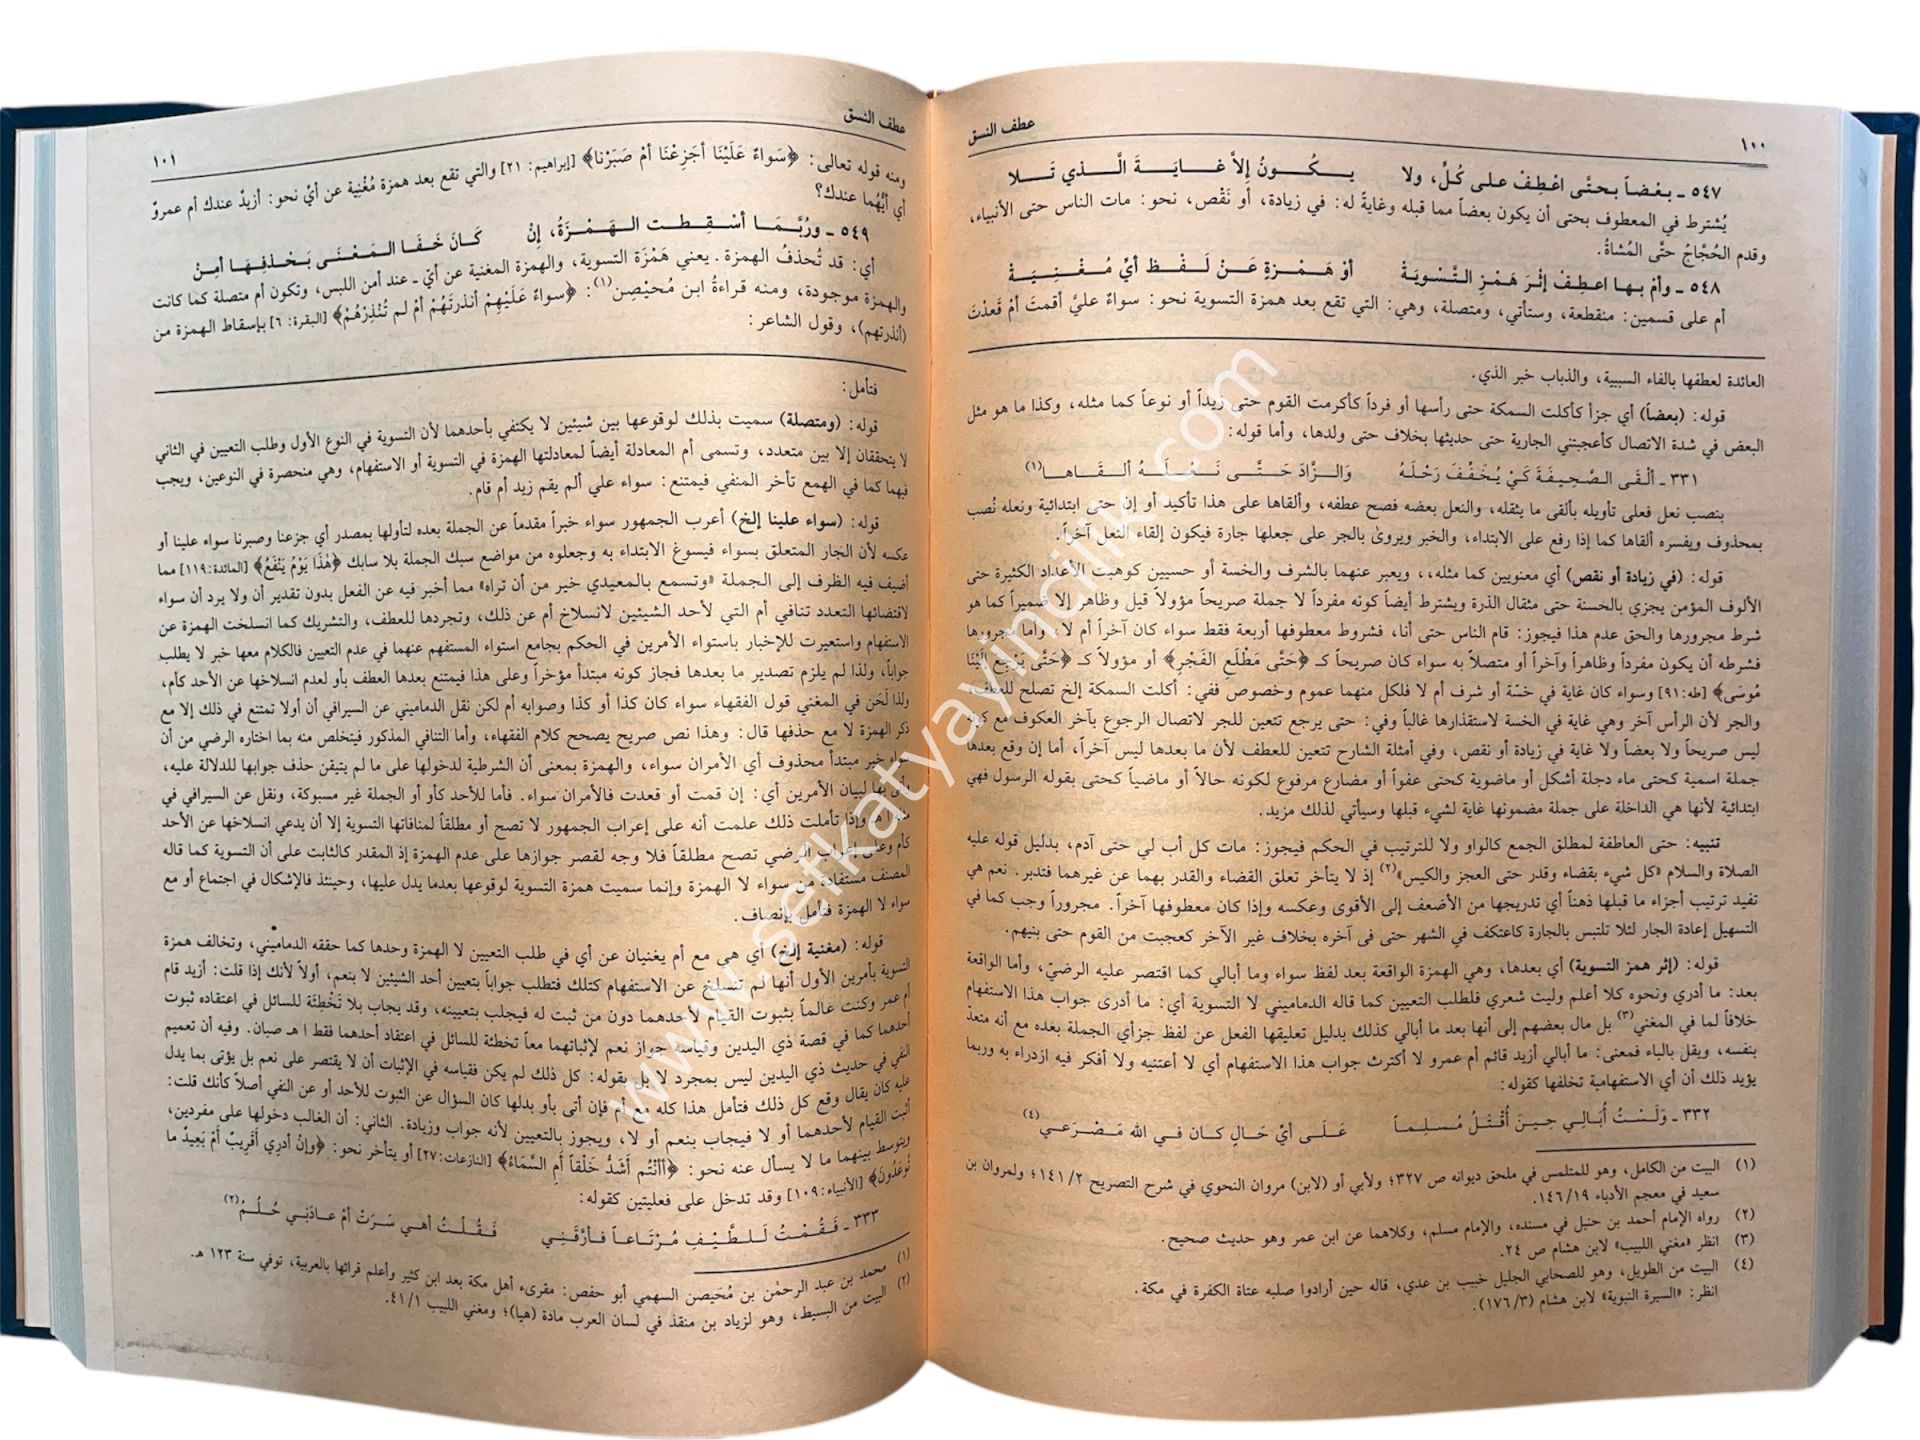 ١٠٠
عطف النسق
٥٤٧ ـ بَعْضاً بحتَّى اعْطِفْ على كُلٍّ، ولا يكُونُ إلاَّ غايَةَ الَّذي تَلا
يُشترط في المعطوف بحتى أن يكون بعضاً مما قبله وغايةً له: في زيادة، أو نَقْص، نحو: مات الناس حتى الأنبياء،
وقدم الحُجَّاجُ حتَّى المُشاةُ.
٥٤٨ ـ وأمْ بـها اعطِفْ إثْرَ هَمْزِ التَّسْويَةْ أوْ هَمْزةٍ عَنْ لَفْظِ أيٍّ مُغْنِيَةْ
أم على قسمين: منقطعة، وستأتي، ومتصلة، وهي: التي تقع بعد همزة التسوية نحو: سواءٌ عليَّ أقمتَ أمْ قَعدْتَ
العائدة لعطفها بالفاء السببية، والذباب خبر الذي.
قوله: (بعضاً) أي جزأ كأكلت السمكة حتى رأسها أو فرداً كأكرمت القوم حتى زيداً أو نوعاً كما مثله، وكذا ما هو مثل
البعض في شدة الاتصال كأعجبتني الجارية حتى حديثها بخلاف حتى ولدها، وأما قوله:
٣٣١ ـ ألْقَى الصَّحِيفَةَ كَيْ يُخَفِّفَ رَحْلَهُ والزَّادَ حَتَّى نَعْلَهُ ألقَاها(١)
بنصب نعل فعلى تأويله بألقى ما يثقله، والنعل بعضه فصح عطفه، وألقاها على هذا تأكيد أو إن حتى ابتدائية ونعله نُصب
بمحذوف ويفسره ألقاها كما إذا رفع على الابتداء، والخبر ويروىٰ بالجر على جعلها جارة فيكون إلقاء النعل آخراً.
قوله: (في زيادة أو نقص) أي معنويين كما مثله،، ويعبر عنهما بالشرف والخسة أو حسيين كوهبت الأعداد الكثيرة حتى
الألوف المؤمن يجزي بالحسنة حتى مثقال الذرة ويشترط أيضاً كونه مفرداً لا جملة صريحاً مؤولاً قيل وظاهر إلا ضميراً كما هو
شرط مجرورها والحق عدم هذا فيجوز: قام الناس حتى أنا، فشروط معطوفها أربعة فقط سواء كان آخراً أم لا، وأما مجرورها
فشرطه أن يكون مفرداً وظاهراً وآخراً أو متصلاً به سواء كان صريحاً كـ ﴿حَتَّى مَطْلَعِ الفَجْرِ﴾ أو مؤولاً كـ ﴿حَتَّى يَرْجِعَ إلَيْنَا
مُوسَى﴾ [طه:٩١] وسواء كان غاية في خسّة أو شرف أم لا فلكل منهما عموم وخصوص ففي: أكلت السمكة إلخ تصلح للعطف،
والجر لأن الرأس آخر وهي غاية في الخسة لاستقذارها غالباً وفي: حتى يرجع تتعين للجر لاتصال الرجوع بآخر العكوف مع كونه
ليس صريحاً ولا بعضاً ولا غاية في زيادة أو نقص، وفي أمثلة الشارح تتعين للعطف لأن ما بعدها ليس آخراً، أما إن وقع بعدها
جملة اسمية كحتى ماء دجلة أشكل أو ماضوية كحتى عفواً أو مضارع مرفوع لكونه حالاً أو ماضياً كحتى بقوله الرسول فهي
ابتدائية لأنها هي الداخلة على جملة مضمونها غاية لشيء قبلها وسيأتي لذلك مزيد.
تنبيه: حتى العاطفة لمطلق الجمع كالواو ولا للترتيب في الحكم فيجوز: مات كل أب لي حتى آدم، بدليل قوله عليه
الصلاة والسلام «كل شيء بقضاء وقدر حتى العجز والكيس»(٢) إذ لا يتأخر تعلق القضاء والقدر بهما عن غيرهما فتدبر. نعم هي
تفيد ترتيب أجزاء ما قبلها ذهناً أي تدريجها من الأضعف إلى الأقوى وعكسه وإذا كان معطوفها آخراً. مجروراً وجب كما في
التسهيل إعادة الجار لئلا تلتبس بالجارة كاعتكف في الشهر حتى فى آخره بخلاف غير الآخر كعجبت من القوم حتى بنيهم.
قوله: (إثر همز التسوية) أي بعدها، وهي الهمزة الواقعة بعد لفظ سواء وما أبالي كما اقتصر عليه الرضيّ، وأما الواقعة
بعد: ما أدري ونحوه كلا أعلم وليت شعري فلطلب التعيين كما قاله الدماميني لا التسوية أي: ما أدرى جواب هذا الاستفهام
خلافاً لما في المغني(٣) بل مال بعضهم إلى أنها بعد ما أبالي كذلك بدليل تعليقها الفعل عن لفظ جزأي الجملة بغده مع أنه متعدّ
بنفسه، ويقل بالباء فمعنى: ما أبالي أزيد قائم أم عمرو لا أكترث جواب هذا الاستفهام أي لا أعتنيه ولا أفكر فيه ازدراء به وربما
يؤيد ذلك أن أي الاستفهامية تخلفها كقوله:
٣٣٢ ـ وَلَسْتُ أُبَالي حِينَ أُقْتَلُ مُسْلِماً عَلَى أيِّ حَالٍ كان في الله مَصْرَعي(٤)
(١) البيت من الكامل، وهو للمتلمس في ملحق ديوانه ص ٣٢٧؛ ولأبي أو (لابن) مروان النحوي في شرح التصريح ١٤١/٢؛ ولمروان بن
سعيد في معجم الأدباء ١٤٦/١٩.
(٢) رواه الإمام أحمد بن حنبل في مسنده، والإمام مسلم، وكلاهما عن ابن عمر وهو حديث صحيح.
(٣) انظر «مغني اللبيب» لابن هشام ص ٢٤.
(٤) البيت من الطويل، وهو للصحابي الجليل خبيب بن عدي، قاله حين أرادوا صلبه عتاة الكفرة في مكة.
انظر: «السيرة النبوية» لابن هشام (١٧٦/٣).
عطف النسق
١٠١
ومنه قوله تعالى: ﴿سَواءٌ عَلَيْنَا أجَزِعْنَا أمْ صَبَرْنا﴾ [إبراهيم: ٢١] والتي تقع بعد همزة مُغْنِية عن أيّ نحو: أزيدٌ عندك أم عمروٌ
أي أيُّهُما عندك؟
٥٤٩ ـ ورُبَّمَا أسْقِطت الهَمْزَةُ، إنْ كَانَ خَفَا المَعْنَى بَحْذفِهَا أمِنْ
أي: قد تُحذفُ الهمزة ـ يعني هَمْزَة التسوية، والهمزة المغنية عن أيّ ـ عند أمن اللبس، وتكون أم متصلة كما كانت
والهمزة موجودة، ومنه قراءةُ ابن مُحيْصِن(١): ﴿سواءٌ عَلَيْهِمْ أنذرتَهُمْ أمْ لم تُنْذِرْهُمْ﴾ [البقرة: ٦] بإسقاط الهمزة من
(أنذرتهم)، وقول الشاعر:
فتأمل:
قوله: (ومتصلة) سميت بذلك لوقوعها بين شيئين لا يكتفي بأحدهما لأن التسوية في النوع الأول وطلب التعيين في الثاني
لا يتحققان إلا بين متعدد، وتسمى أم المعادلة أيضاً لمعادلتها الهمزة في التسوية أو الاستفهام، وهي منحصرة في النوعين، ويجب
فيهما كما في الهمع تأخر المنفي فيمتنع: سواء علي ألم يقم زيد أم قام.
قوله: (سواء علينا إلخ) أعرب الجمهور سواء خبراً مقدماً عن الجملة بعده لتأولها بمصدر أي جزعنا وصبرنا سواء علينا أو
عكسه لأن الجار المتعلق بسواء فيسوغ الابتداء به وجعلوه من مواضع سبك الجملة بلا سابك ﴿هٰذَا يَوْمُ يَنْفَعُ﴾ [المائدة:١١٩] مما
أضيف فيه الظرف إلى الجملة «وتسمع بالمعيدي خير من أن تراه» مما أخبر فيه عن الفعل بدون تقدير أن ولا يرد أن سواء
لاقتضائها التعدد تنافي أم التي لأحد الشيئين لانسلاخ أم عن ذلك، وتجردها للعطف، والتشريك كما انسلخت الهمزة عن
الاستفهام واستعيرت للإخبار باستواء الأمرين في الحكم بجامع استواء المستفهم عنهما في عدم التعيين فالكلام معها خبر لا يطلب
جواباً، ولذا لم يلزم تصدير ما بعدها فجاز كونه مبتدأ مؤخراً وعلى هذا فيمتنع بعدها العطف بأو لعدم انسلاخها عن الأحد كأم،
ولذا لَحَن في المغني قول الفقهاء سواء كان كذا أو كذا وصوابه أم لكن نقل الدماميني عن السيرافي أن أولا تمتنع في ذلك إلا مع
ذكر الهمزة لا مع حذفها قال: وهذا نص صريح يصحح كلام الفقهاء، وأما التنافي المذكور فيتخلص منه بما اختاره الرضي من أن
سواء خبر مبتدأ محذوف أي الأمران سواء، والهمزة بمعنى أن الشرطية لدخولها على ما لم يتيقن حذف جوابها للدلالة عليه،
وأتى بها لبيان الأمرين أي: إن قمت أو قعدت فالأمران سواء. فأما للأحد كأو أو الجملة غير مسبوكة، ونقل عن السيرافي في
اهـ وإذا تأملت ذلك علمت أنه على إعراب الجمهور لا تصح أو مطلقاً لمنافاتها التسوية إلا أن يدعي انسلاخها عن الأحد
كأم وعلى إعراب الرضي تصح مطلقاً فلا وجه لقصر جوازها على عدم الهمزة إذ المقدر كالثابت على أن التسوية كما قاله
المصنف مستفادة من سواء لا الهمزة وإنما سميت همزة التسوية لوقوعها بعدما يدل عليها، وحينئذ فالإشكال في اجتماع أو مع
سواء لا الهمزة فتأمل بإنصاف.
قوله: (مغنية إلخ) أي هي مع أم يغنيان عن أي في طلب التعيين لا الهمزة وحدها كما حققه الدماميني، وتخالف همزة
التسوية بأمرين الأول أنها لم تنسلخ عن الاستفهام كتلك فتطلب جواباً بتعيين أحد الشيئين لا بنعم، أولاً لأنك إذا قلت: أزيد قام
أم عمر وكنت عالماً بثبوت القيام لأحدهما دون من ثبت له فيجلب بتعيينه، وقد يجاب بلا تَخْطِئَة للسائل في اعتقاده ثبوت
أحدهما كما في قصة ذي اليدين وقياسه جواز نعم لإثباتهما معاً تخطئة للسائل في اعتقاد أحدهما فقط ا هـ صبان. وفيه أن تعميم
النفي في حديث ذي اليدين ليس بمجرد لا بل بقوله: كل ذلك لم يكن فقياسه في الإثبات أن لا يقتصر على نعم بل يؤتى بما يدل
عليه كان يقال وقع كل ذلك فتأمل هذا كله مع أم فإن أتى بأو بدلها كان السؤال عن الثبوت للأحد أو عن النفي أصلاً كأنك قلت:
أثبت القيام لأحدهما أو لا فيجاب بنعم أو لا، ويجوز بالتعيين لأنه جواب وزيادة. الثاني: أن الغالب دخولها على مفردين،
ويتوسط بينهما ما لا يسأل عنه نحو: ﴿أأنْتُم أَشَدُّ خَلْقاً أَمِ السَّمَاءُ﴾ [النازعات:٢٧] أو يتأخر نحو: ﴿وإنْ أدرِي أَقَرِيبٌ أَمْ بَعِيدٌ ما
تُوعَدُونَ﴾ [الأنبياء:١٠٩] وقد تدخل على فعليتين كقوله:
٣٣٣ ـ فَقُمْتُ لَلطَّيْفِ مُرْتَاعاً فأرَّقَنِي فَقُلْتُ أهي سَرَتْ أمْ عادَنِي حُلُمُ(٢)
(١) محمد بن عبد الرحمٰن بن مُحَيصن السهمي أبو حفص: مقرىء أهل مكة بعد ابن كثير وأعلم قرائها بالعربية، توفي سنة ١٢٣ هـ.
(٢) البيت من البسيط، وهو لزياد بن منقذ في لسان العرب مادة (هيا)؛ ومغني اللبيب ٤١/١.
www.sefkatyayincilik.com